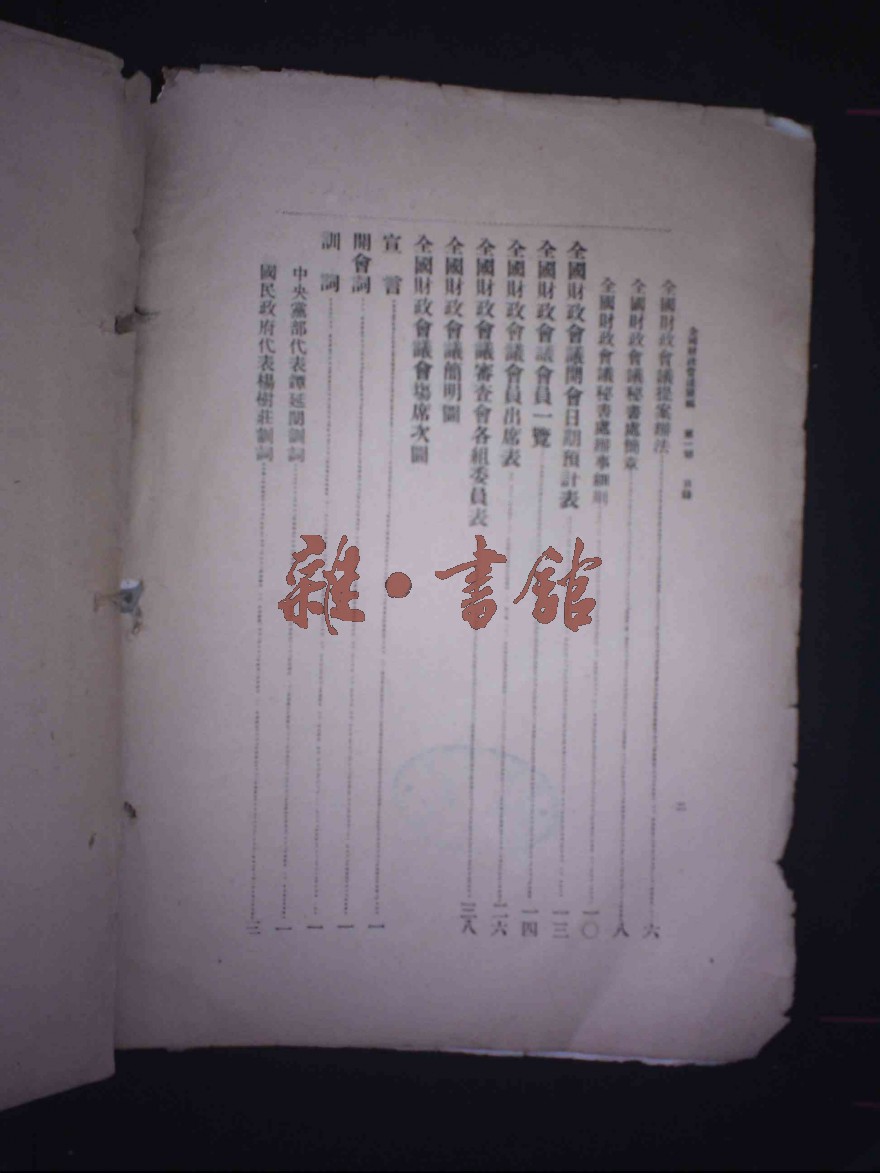 全國財政會議彙編 第一號 目錄
二
全國財政會議提案辦法 六
全國財政會議秘書處簡章 八
全國財政會議秘書處辦事細則 一〇
全國財政會議開會日期預計表 一三
全國財政會議會員一覽 一四
全國財政會議會員出席表 二六
全國財政會議審查會各組委員表 三八
全國財政會議簡明圖
全國財政會議會場席次圖
宣言 一
開會詞 一
訓詞 一
中央黨部代表譚延闓訓詞 一
國民政府代表楊樹莊訓詞 二
雜·書館